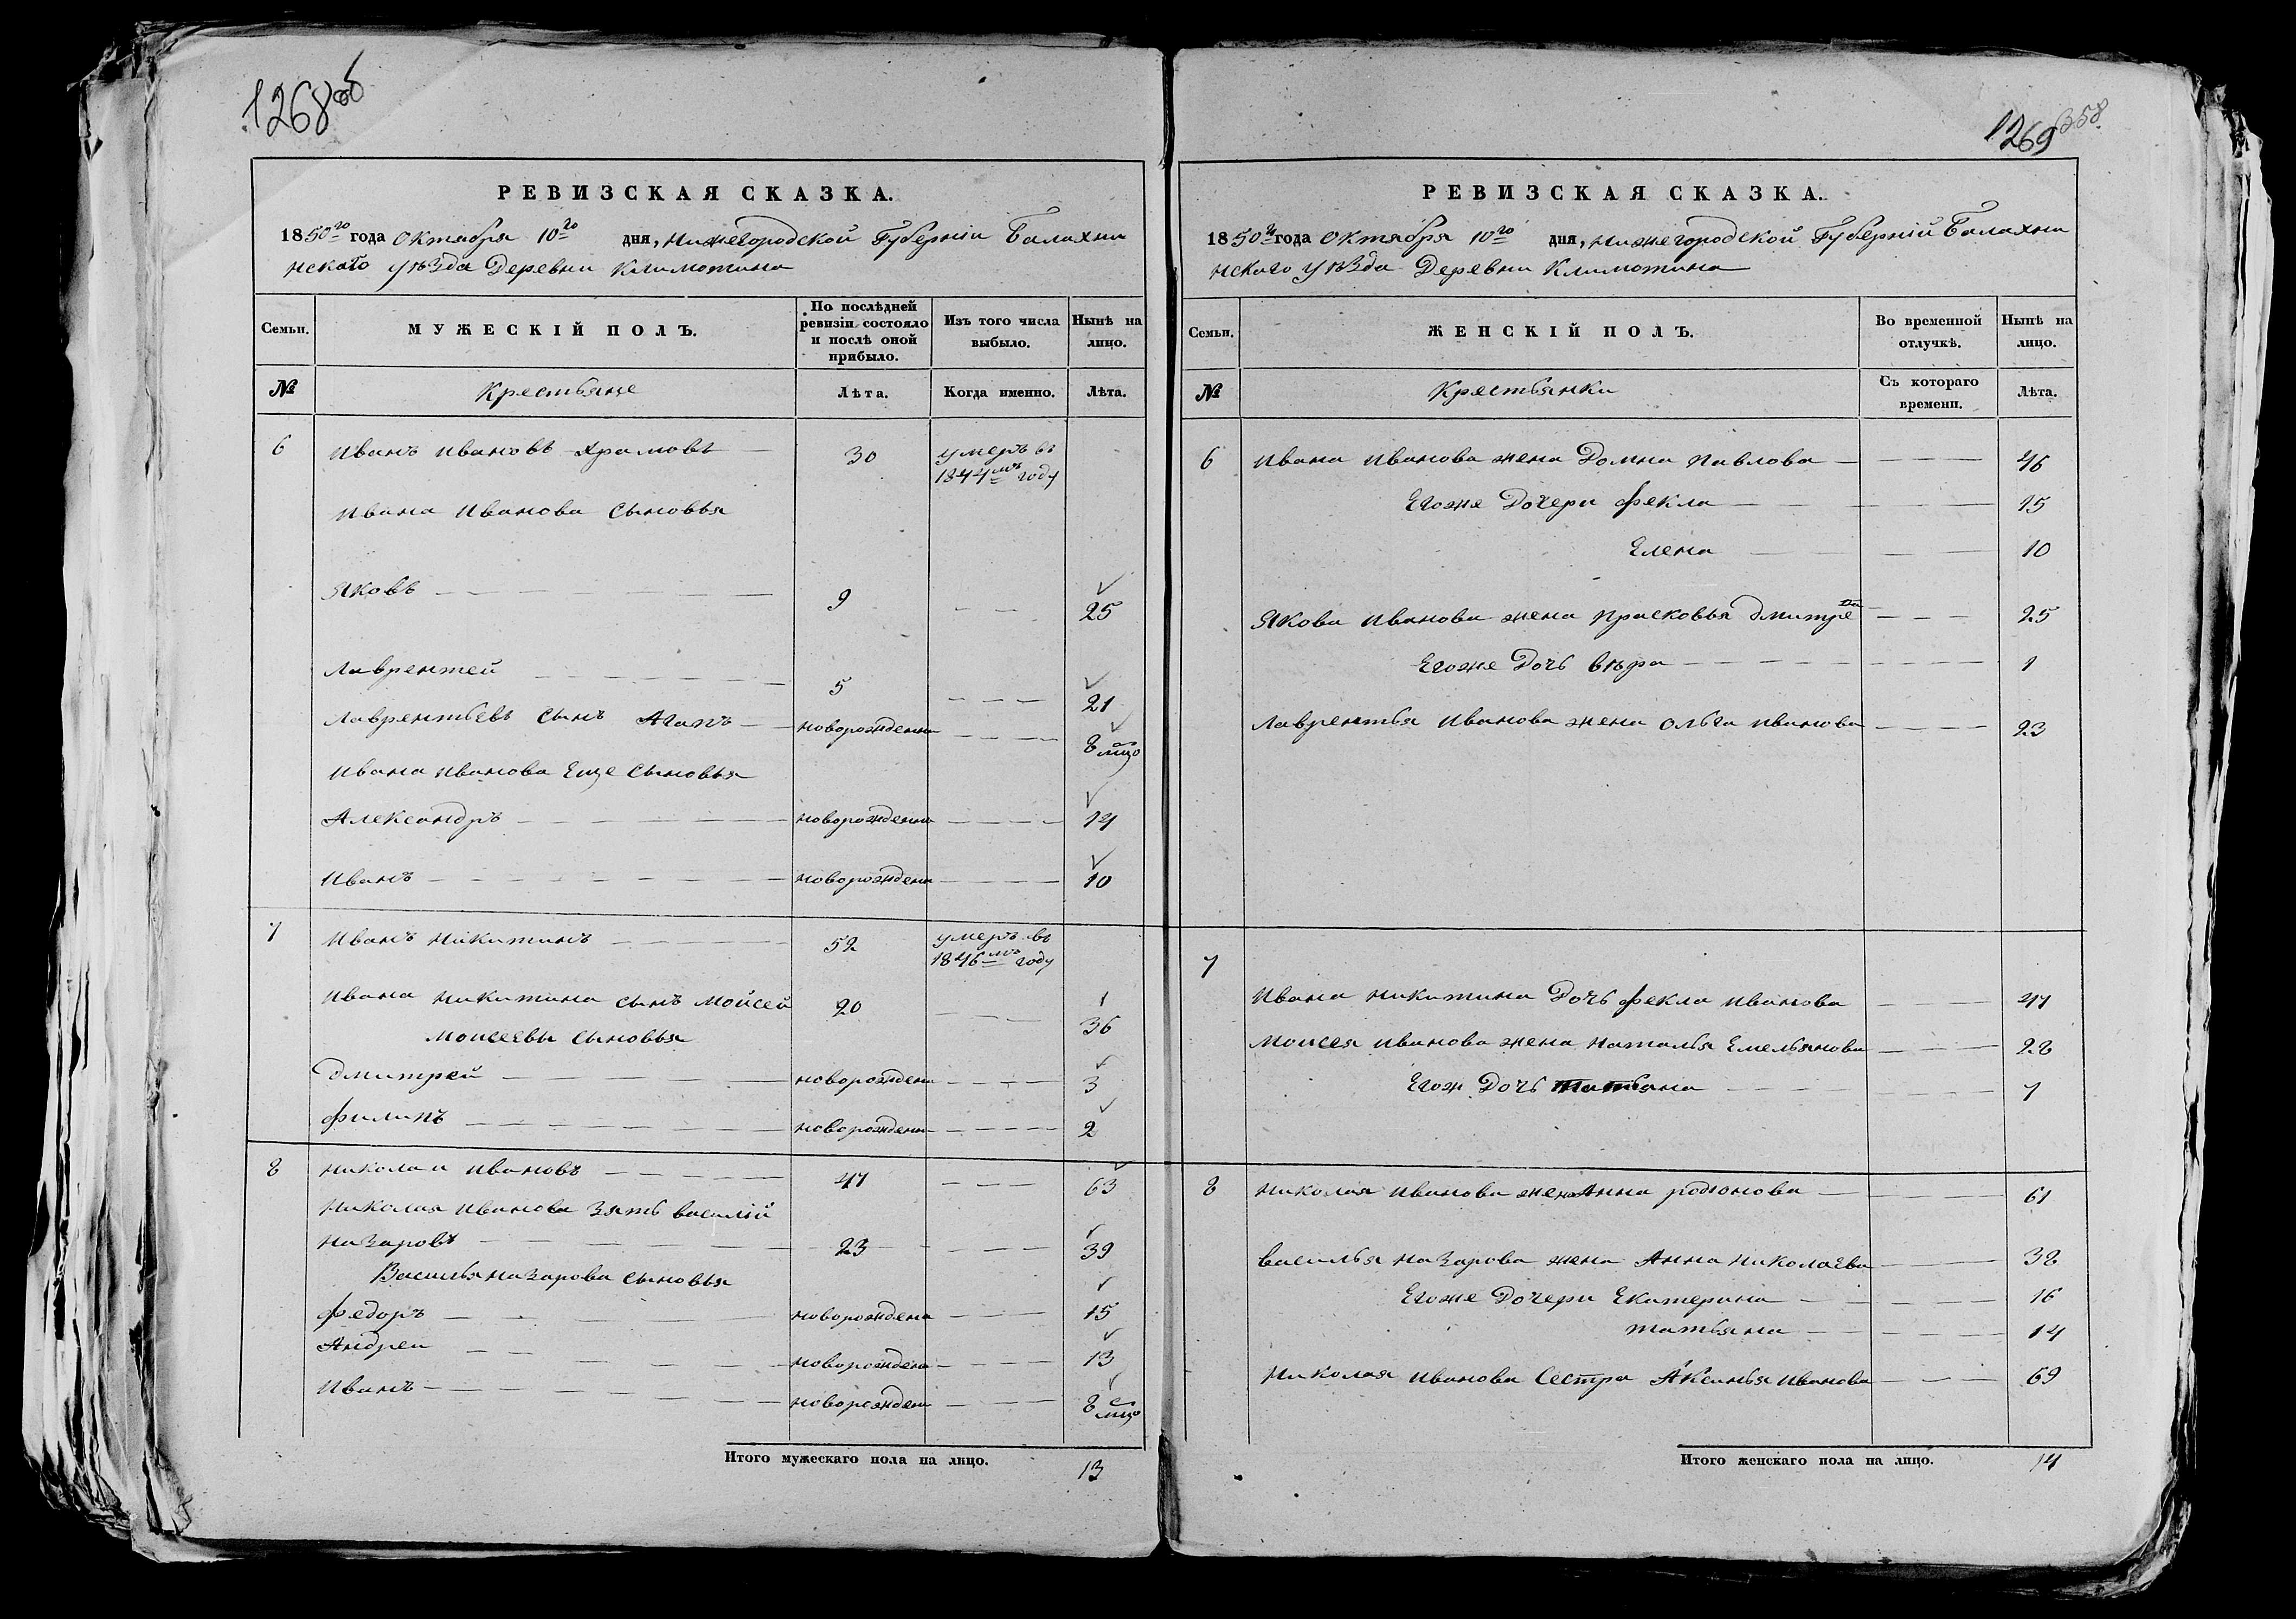 1268об
РЕВИЗСКАЯ СКАЗКА.
1850го года Октября 10го дня, Нижегородской Губерніи Балахни
нскаго уѣзда Деревни Климотина
Семьи. МУЖЕСКІЙ ПОЛЪ. По послѣдней ревизіи состояло и послѣ оной прибыло. Изъ того числа выбыло. Нынѣ на лицо.
№ Крестьяне Лѣта. Когда именно. Лѣта.
6 Иванъ Ивановъ Храмовъ 30 умеръ въ 1844мъ году
Ивана Иванова сыновья
Яковъ 9 25
Лаврентей 5 21
Лаврентьевъ сынъ Агапъ новорожденн 8 мцо
Ивана Иванова Еще сыновья
Александръ новорожденн 14
Иванъ новорождена 10
7 Иванъ Никитинъ 52 умеръ въ 1846мъ году
Ивана Никитина сынъ Мойсей 20 36
Моисеевы сыновья
Дмитрей новорожден 3
Филипъ новорожден 2
8 Николаи Ивановъ 47 63
Николая Иванова Зять василій
Назаровъ 23 39
Василья Назарова сыновья
Федоръ новорождена 15
Андреи новорожден 13
Иванъ новорожден 8 мцо
Итого мужескаго пола на лицо. 13
1269 358.
РЕВИЗСКАЯ СКАЗКА.
1850го года Октября 10го дня, Нижегородской Губерній Балахни
нскаго уѣзда Деревни Климотина
Семьи. ЖЕНСКІЙ ПОЛЪ. Во временной отлучкѣ. Нынѣ на лицо.
№ Крестьянки Съ котораго времени. Лѣта.
6 Ивана Иванова жена Домна Павлова 46
Егоже Дочери Фекла 15
Елена 10
Якова Иванова жена Прасковья Дмитрева 25
Егоже Дочь вѣра 1
Лаврентья Иванова жена Ольга Иванова 23
7
Ивана Никитина Дочь Фекла Иванова 47
Моисея Иванова жена Наталья Емельянова 28
Егож Дочь татьяна 7
8 Николая Иванова жена Анна родионова 61
василья Назарова жена Анна Николаева 38
Егоже Дочери Екатерина 16
татьяна 14
Николая Иванова Сестра Аксинья Иванова 69
Итого женскаго пола на лицо. 14